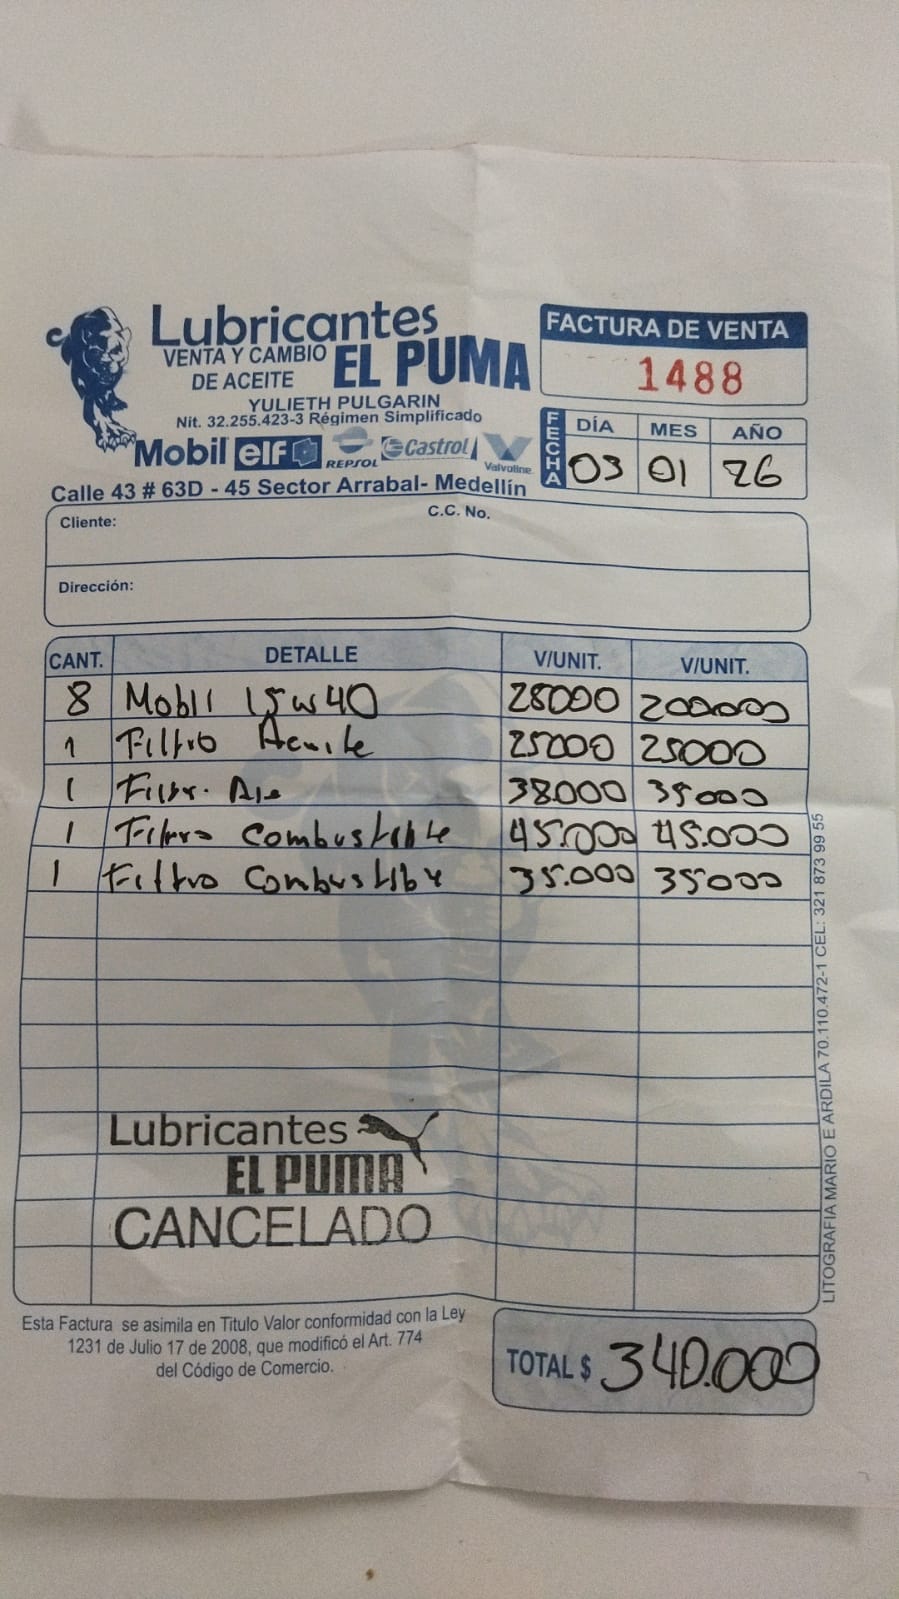 Lubricantes
VENTA Y CAMBIO
DE ACEITE
EL PUMA
YULIETH PULGARIN
Nit. 32.255.423-3 Régimen Simplificado
Mobil elf REPSOL Castrol Valvoline
Calle 43 # 63D - 45 Sector Arrabal- Medellín
FACTURA DE VENTA
1488
FECHA
DÍA MES AÑO
03 01 26
Cliente: C.C. No.
Dirección:
CANT. DETALLE V/UNIT. V/UNIT.
8 Mobil 15w40 28000 200.000
1 Filtro Aceite 25000 25000
1 Filtr. Aie 38.000 35000
1 Filtro combustible 45.000 45.000
1 Filtro combustible 35.000 35000
Lubricantes
EL PUMA
CANCELADO
Esta Factura se asimila en Titulo Valor conformidad con la Ley
1231 de Julio 17 de 2008, que modificó el Art. 774
del Código de Comercio.
TOTAL $ 340.000
LITOGRAFIA MARIO E ARDILA 70.110.472-1 CEL: 321 873 99 55